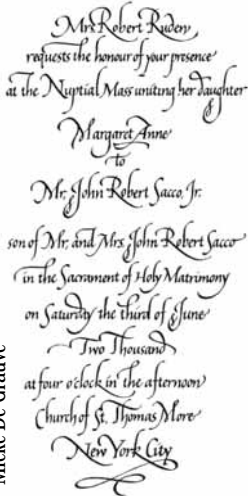 Mrs Robert Ruden
requests the honour of your presence
at the Nuptial Mass uniting her daughter
Margaret Anne
to
Mr. John Robert Sacco, Jr.
son of Mr. and Mrs. John Robert Sacco
in the Sacrament of Holy Matrimony
on Saturday the third of June
Two Thousand
at four o'clock in the afternoon
Church of St. Thomas More
New York City
Mieke De Grauve